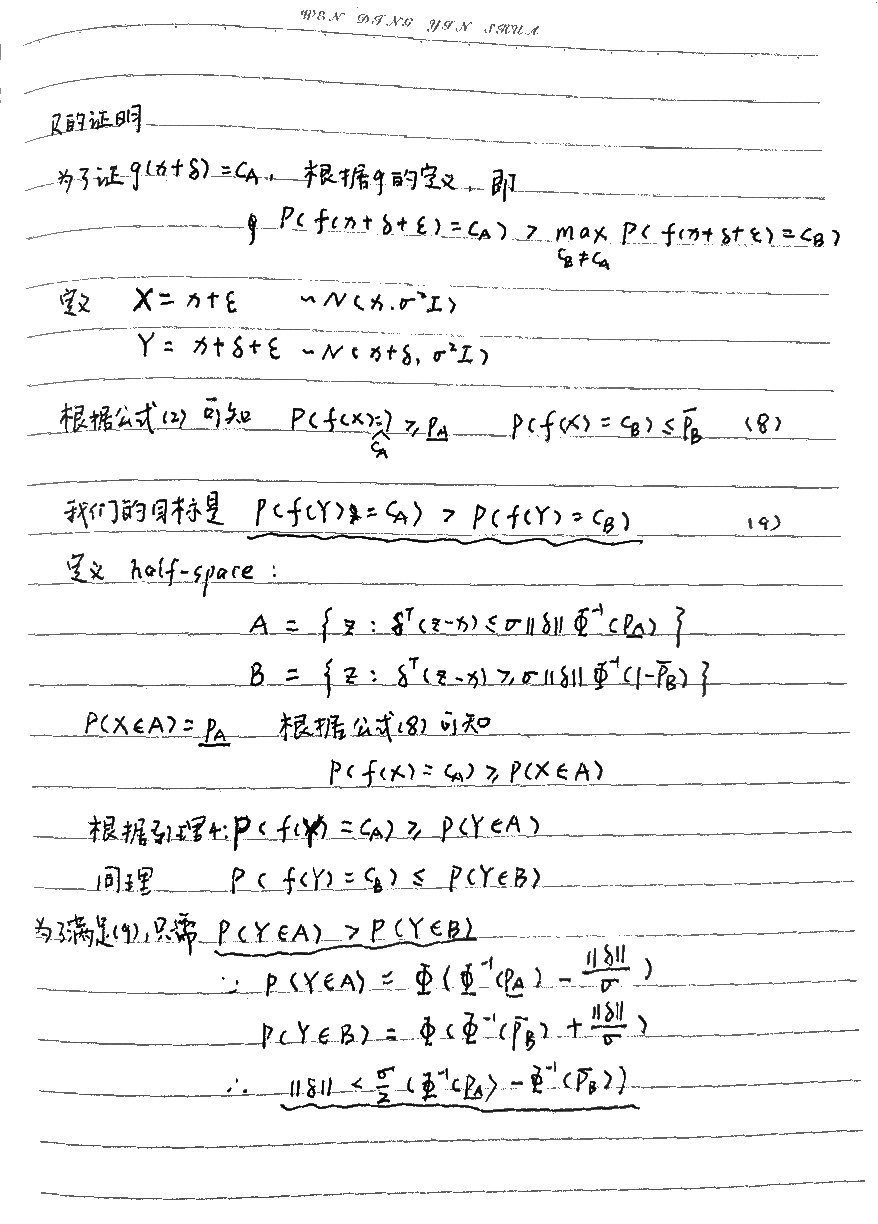 WEN DING YIN SHUA
R的证明
为了证 g(x+δ)=C_A, 根据g的定义, 即
P(f(x+δ+ε)=C_A) > max_{C_B≠C_A} P(f(x+δ+ε)=C_B)
定义 X = x+ε ~N(x, σ²I)
Y = x+δ+ε ~N(x+δ, σ²I)
根据公式(2)可知 P(f(X)=C_A) ≥ \underline{P_A} P(f(X)=C_B) ≤ \bar{P}_B (8)
我们的目标是 P(f(Y)=C_A) > P(f(Y)=C_B) (9)
定义 half-space:
A = {z: δ^T(z-x) ≤ σ||δ||Φ^{-1}(\underline{P_A})}
B = {z: δ^T(z-x) ≥ σ||δ||Φ^{-1}(1-\bar{P}_B)}
P(X∈A)=\underline{P_A} 根据公式(8)可知
P(f(X)=C_A) ≥ P(X∈A)
根据引理4: P(f(Y)=C_A) ≥ P(Y∈A)
同理 P(f(Y)=C_B) ≤ P(Y∈B)
为了满足(9),只需 P(Y∈A) > P(Y∈B)
∵ P(Y∈A) = Φ(Φ^{-1}(\underline{P_A}) - ||δ||/σ)
P(Y∈B) = Φ(Φ^{-1}(\bar{P}_B) + ||δ||/σ)
∴ ||δ|| < σ/2 (Φ^{-1}(\underline{P_A}) - Φ^{-1}(\bar{P}_B))